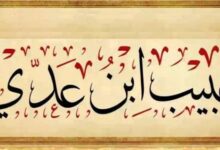 بيب ابنُ عَدِيّ